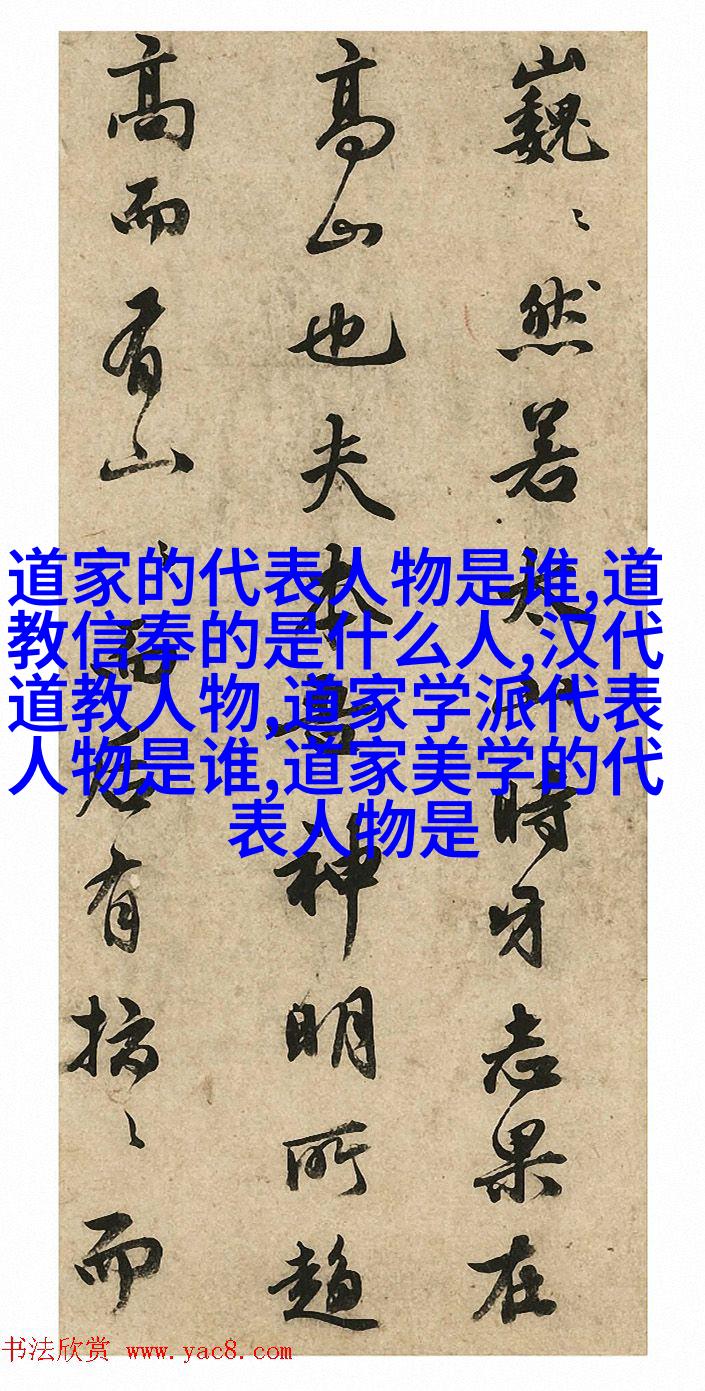 巍〻然若太山時牙志果在
高山也夫本神明所趨
高而有山〻而后有〻而
道家的代表人物是谁,道
教信奉的是什么人,汉代
道教人物,道家学派代表
人物是谁,道家美学的代
表人物是
书法欣赏 www.yac8.com